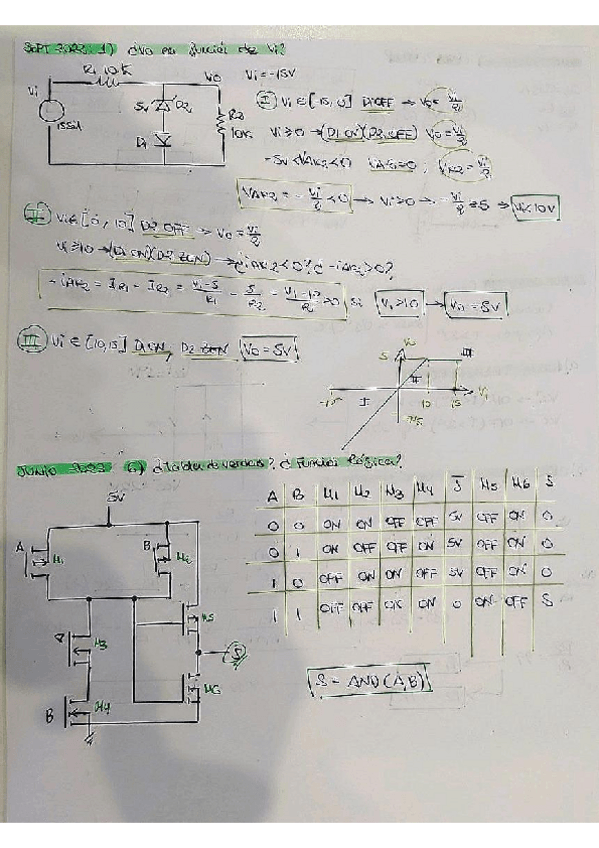 SEPT 2022. 1) ¿Vo en función de Vi?
R1 10K
Vo
Vi = -15V
Vi
5V
D2
R2
10K
D1
I Vi ∈ [-15, 0] D1 OFF → Vo = Vi/2
Vi ≥ 0 → (D1 ON)(D2 OFF) Vo = Vi/2
-5V < VAK2 < 0
VAK2 = -Vi/2 < 0 → Vi > 0
Vi < 10V
II Vi ∈ [0, 10] D2 OFF → Vo = Vi/2
Vi ≥ 10 → (D1 ON)(D2 ZEN) → ¿iAK2 < 0? ¿-iAK2 > 0?
-iAK2 = IR1 - IR2 = Vi-5/R1 - 5/R2 = Vi-10/R > 0 si Vi > 10 → Vo = 5V
III Vi ∈ [10, 15] D1 ON, D2 ZEN Vo = 5V
Vo
5
III
II
I
-15
10
15
Vi
JUNIO 2023 6) ¿Tabla de verdad?, ¿Función lógica?
5V
A
M1
B
M2
M3
M5
S
B
M4
M6
A B M1 M2 M3 M4 J M5 M6 S
0 0 ON ON OFF OFF 5V OFF ON 0
0 1 ON OFF OFF ON 5V OFF ON 0
1 0 OFF ON ON OFF 5V OFF ON 0
1 1 OFF OFF ON ON 0 ON OFF 5
S = AND(A,B)